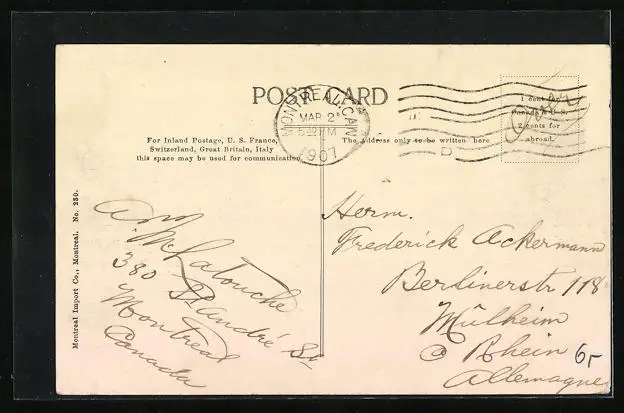 POST CARD
MONTREAL, CAN.
MAR 2
5 30 PM
1907
D
1 cent for
Canada & U.S.
2 cents for
abroad.
For Inland Postage, U. S. France,
Switzerland, Great Britain, Italy
this space may be used for communication.
The Address only to be written here
Montreal Import Co., Montreal. No. 230.
A. Mc Latouche
380 St André St
Montreal
Canada
Herrn.
Frederick Ackermann
Berlinerstr 118
Mülheim
a Rhein
Allemagne
6,-